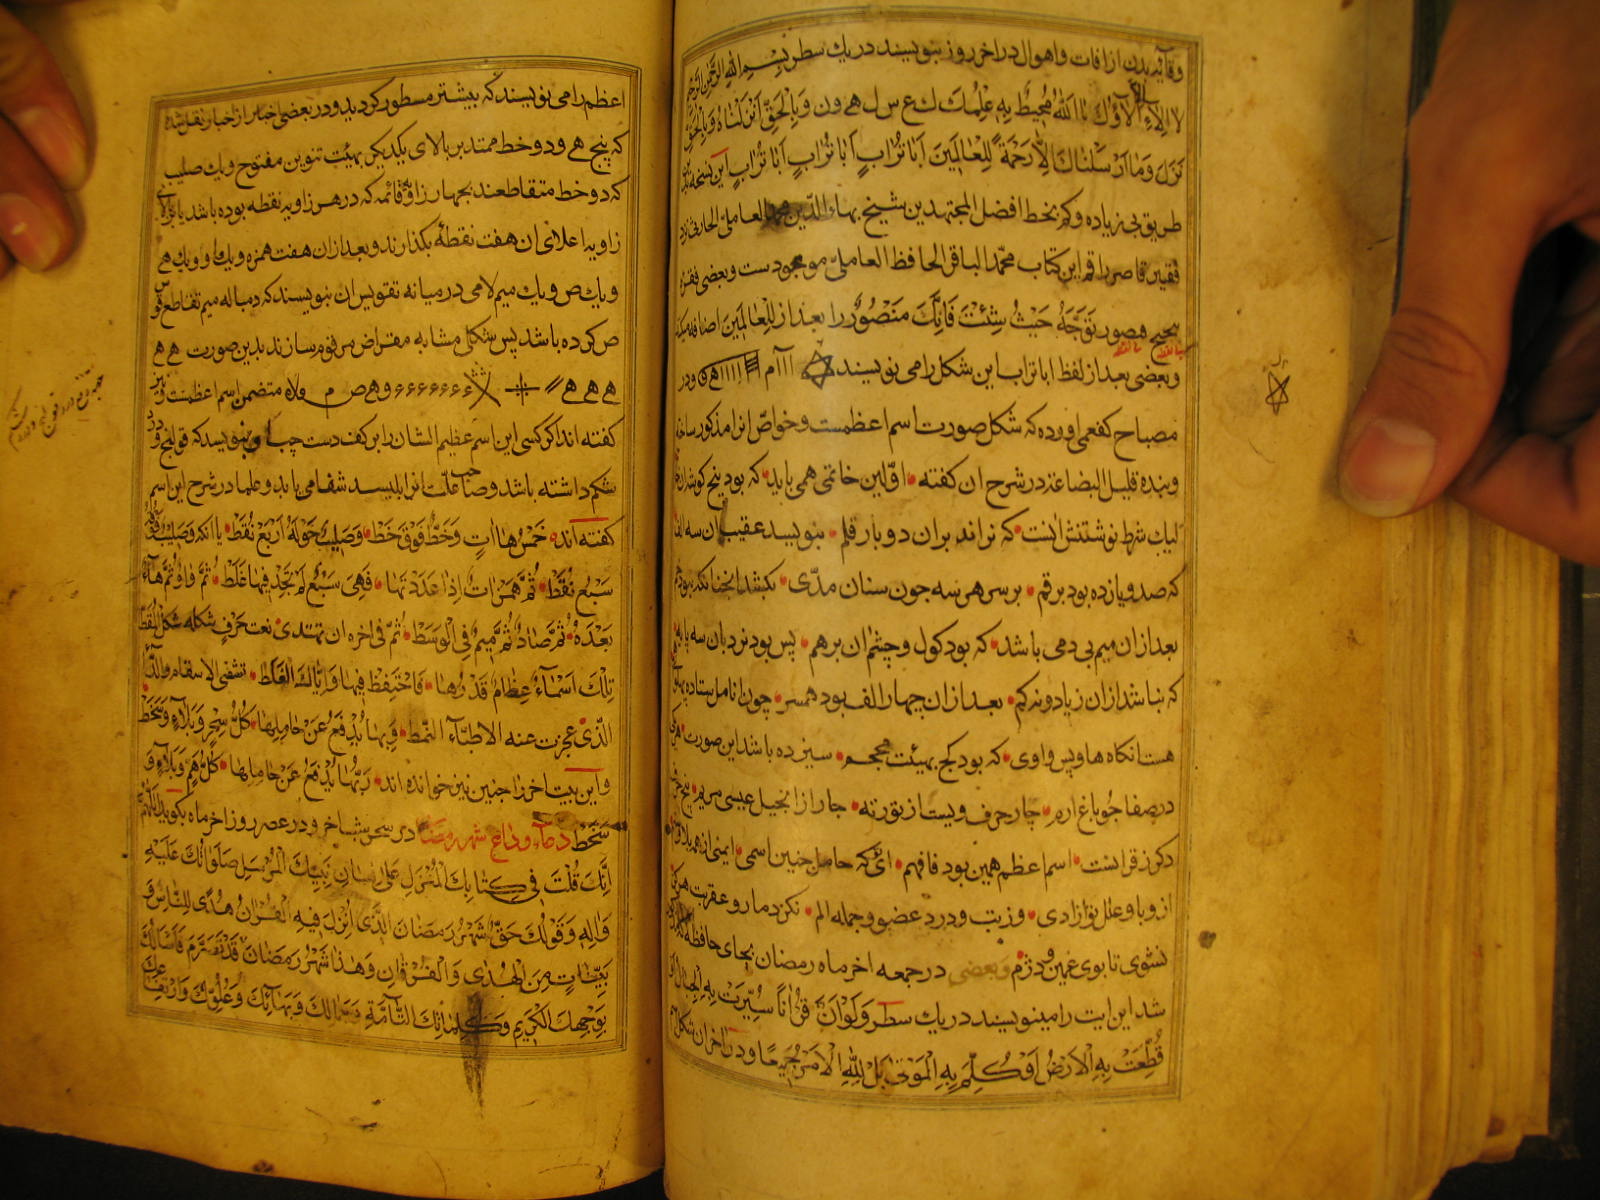 وقایه بدن از افات واهوال در اخر روز بنویسند در یك سطر بِسْمِ اللهِ الرَّحْمنِ الرَّحِیمِ
لا اِلٰهَ اِلّا آلاؤُكَ یا اَللهُ مُحیطٌ بِهِ عِلْمُكَ ك ع س ل هے ون وَبِالْحَقِّ اَنْزَلْناهُ وَبِالْحَقِّ
نَزَلَ وَمٰا اَرْسَلْنٰاكَ اِلّٰا رَحْمَةً لِلْعٰالَمینَ اَبٰا تُرٰابٍ اَبٰا تُرٰابٍ اَبٰا تُرٰابٍ این نسخه
طریق بی زیاده وکم بخط افضل المجتهدین شیخ بهاء الدّین محمد العاملی الحارثی نزد
فقیر قاصر راقم این کتاب محمّد الباقی الحافظ العاملی موجودست وبعضی فقره
تَوَجَّهْ حَیْثُ شِئْتَ فَاِنَّكَ مَنْصُورٌ را بعد از لِلْعٰالَمینَ اضافه
وبعضی بعد از لفظ ابا تراب این شکل را می نویسند ااام ااااه ودر
مصباح کفعمی اورده که شکل صورت اسم اعظمست وخواصّ انرا مذکور ساخته
وبنده قلیل البضاعة در شرح ان کفته • اوّلین خاتمی همی باید • که بود پنج کوشه
لیك شرط نوشتنش اینست • که نراند بران دو بار قلم • بنویسد عقیب ان سه الف
که صد ویازده بود برقم • بر سر هر سه چون سنان مدّی • بکشد انچنانکه نبود خم
بعد از ان میم بی دمی باشد • که بود کول وچشم ان برهم • پس بود نردبان سه پایه
که بناشد از ان زیاد ونه کم • بعد از ان چهار الف بود همسر • چون انامل ستاده
هست انکاه ها وپس واوی • که بود کج بهیئت محجم • سیزده باشد این صورت
در صفا جو باغ ارم • چار حرف ویست از توریة • چار از انجیل عیسی مریم •
دکر ز قرانست • اسم اعظم همین بود فافهم • ای که حامل چنین اسمی •
از وبا وعلل تو ازادی • وز تب ودرد عضو وجمله الم • نکزد مار وعقربت هرکز
نشوی تا بوی غمین ودژم وبعضی در جمعه اخر ماه رمضان بجای حافظه
شد این ایت را مینویسند در یك سطر وَلَوْ اَنَّ قُرْاٰنًا سُیِّرَتْ بِهِ الْجِبالُ اَوْ
قُطِّعَتْ بِهِ الْاَرْضُ اَوْ کُلِّمَ بِهِ الْمَوْتٰی بَلْ لِلّٰهِ الْاَمْرُ جَمیعًا ودر اخر ان شکل
اعظم را می نویسند که بیشتر مسطور کردید ودر بعضی اخبار نقل شده
که پنج هے ودو خط ممتد بر بالای یکدیکر بهیئت تنوین مفتوح ویك صلیب
که دو خط متقاطعند بچهار زاویه قائمه که در هر زاویه نقطه بوده باشد یا بر بالای
زاویه اعلای ان هفت نقطهٔ بکذارند وبعد از ان هفت همزه ویك واو ویك هے
ویك ص ویك میم لامی در میانه تقویس ان بنویسند که دمباله میم تقاطع قوس
ص کرده باشد پس شکلی مشابه مقراض مرقوم سازند بدین صورت هے هے
هے هے هے ءءءءءءء وهے ص م ولاه متضمن اسم اعظمست
کفته اند اکر کسی این اسم عظیم الشان را بر کف دست چپ بنویسد که قولنج ودرد
شکم داشته باشد وصاحب علّت انرا بلیسد شفا می یابد وعلما در شرح این اسم
کفته اند • خَمْسُ هٰااٰتٍ وَخَطٌّ فَوْقَ خَطْ • وَصَلیبٌ حَوْلَهُ اَرْبَعْ نُقَطْ • یا انکه وَصَلیبٌ فَوْقَهُ
سَبْعُ نُقَطْ • ثُمَّ هَمْزاتٌ اِذٰا عَدَدْتَهٰا • فَهِیَ سَبْعٌ لَمْ تَجِدْ فیهٰا غَلَطْ • ثُمَّ وٰاوٌ ثُمَّ هٰاءٌ
بَعْدَهُ • ثُمَّ صٰادٌ ثُمَّ میمٌ فِی الْوَسَطْ • ثُمّ فی اخره ان تهتدی • نعت حَرْفٍ شکله شکل
تِلْكَ اَسْمٰاءٌ عِظٰامٌ قَدْرُهٰا • فَاحْتَفِظْ فیهٰا وَاِیّٰاكَ الْغَلَطْ • تشفی الاسقام والدّاء
الّذی عجزت عنه الاطبّآء النّمط • وَبِهٰا یُدْفَعُ عَنْ حٰامِلِهٰا • کُلُّ سِحْرٍ وَبَلٰاءٍ وَسَخَطْ
واین بیت اخر را چنین نیز خوانده اند • رَبُّهٰا یَدْفَعُ عَنْ حٰامِلِهٰا • کُلَّ هَمٍّ وَبَلٰاءٍ وَ
سَخَطْ دعآء وداع شهر رمضان در سحر شب اخر ودر عصر روز اخر ماه بکوید اَللّٰهُمَّ
اِنَّكَ قُلْتَ فی کِتٰابِكَ الْمُنْزَلِ عَلٰی لِسانِ نَبِیِّكَ الْمُرْسَلِ صَلَوٰاتُكَ عَلَیْهِ
وَاٰلِهِ وَقَوْلُكَ حَقٌّ شَهْرُ رَمَضانَ الَّذی اُنْزِلَ فیهِ الْقُرْاٰنُ هُدًی لِلنّٰاسِ وَ
بَیِّنٰاتٍ مِنَ الْهُدٰی وَالْفُرْقٰانِ وَهٰذٰا شَهْرُ رَمَضٰانَ قَدْ تَصَرَّمَ فَاَسْاَلُكَ
بِوَجْهِكَ الْکَریمِ وَکَلِمٰاتِكَ التّٰآمَّةِ وَجَمٰالِكَ وَبَهٰآئِكَ وَعُلُوِّكَ وَارْتِفٰاعِكَ